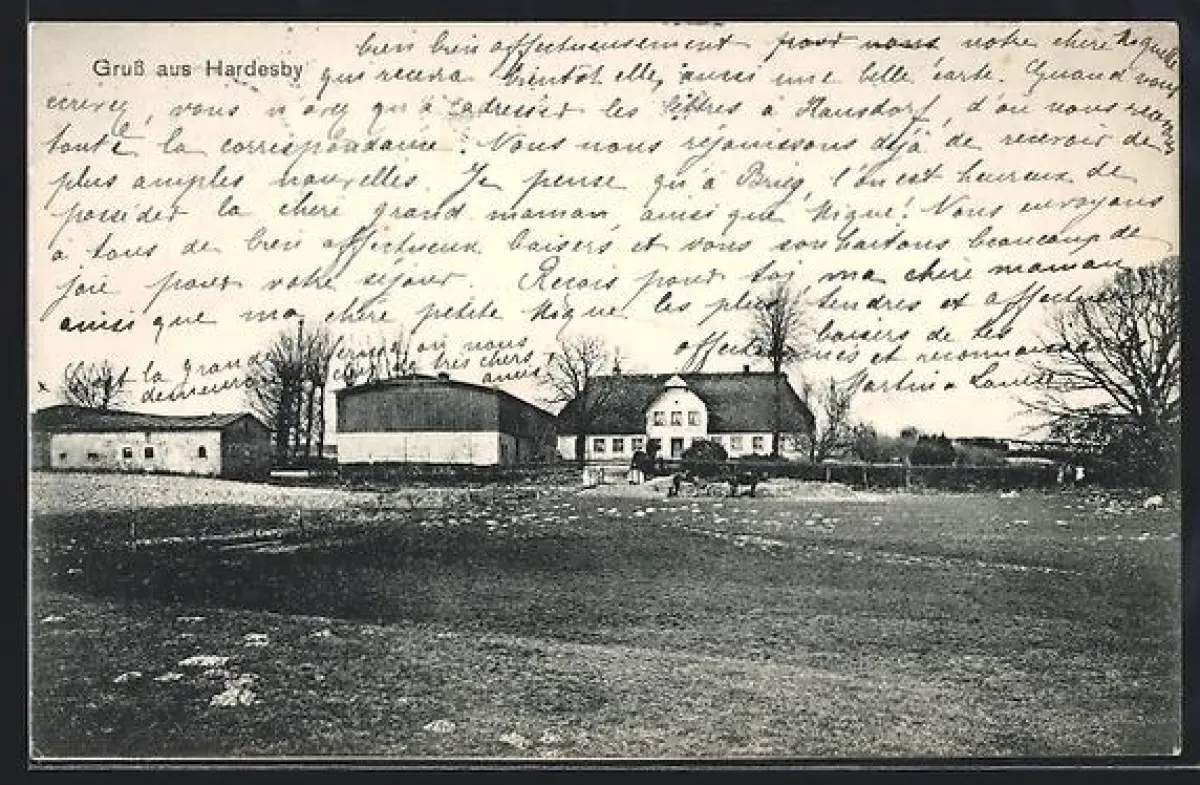 bien bien affectueusement pour nous votre chère Miquette
Gruß aus Hardesby
qui recevra bientôt elle, aussi une belle carte. Quand vous
écrivez, vous n'avez qu'à adresser les lettres à Hansdorf, d'où nous recevons
toute la correspondance. Nous nous réjouissons déjà de recevoir de
plus amples nouvelles. Je pense qu'à Brieg, l'on est heureux de
posséder la chère grand maman ainsi que Mique! Nous envoyons
à tous de bien affectueux baisers et vous souhaitons beaucoup de
joie pour votre séjour. Reçois pour toi, ma chère maman
ainsi que ma chère petite Mique les plus tendres et affectueux
baisers de tes
affectionnés et reconnaissants
Martin et
x C'est la grande ferme où nous
demeurons chez de très chers
amis